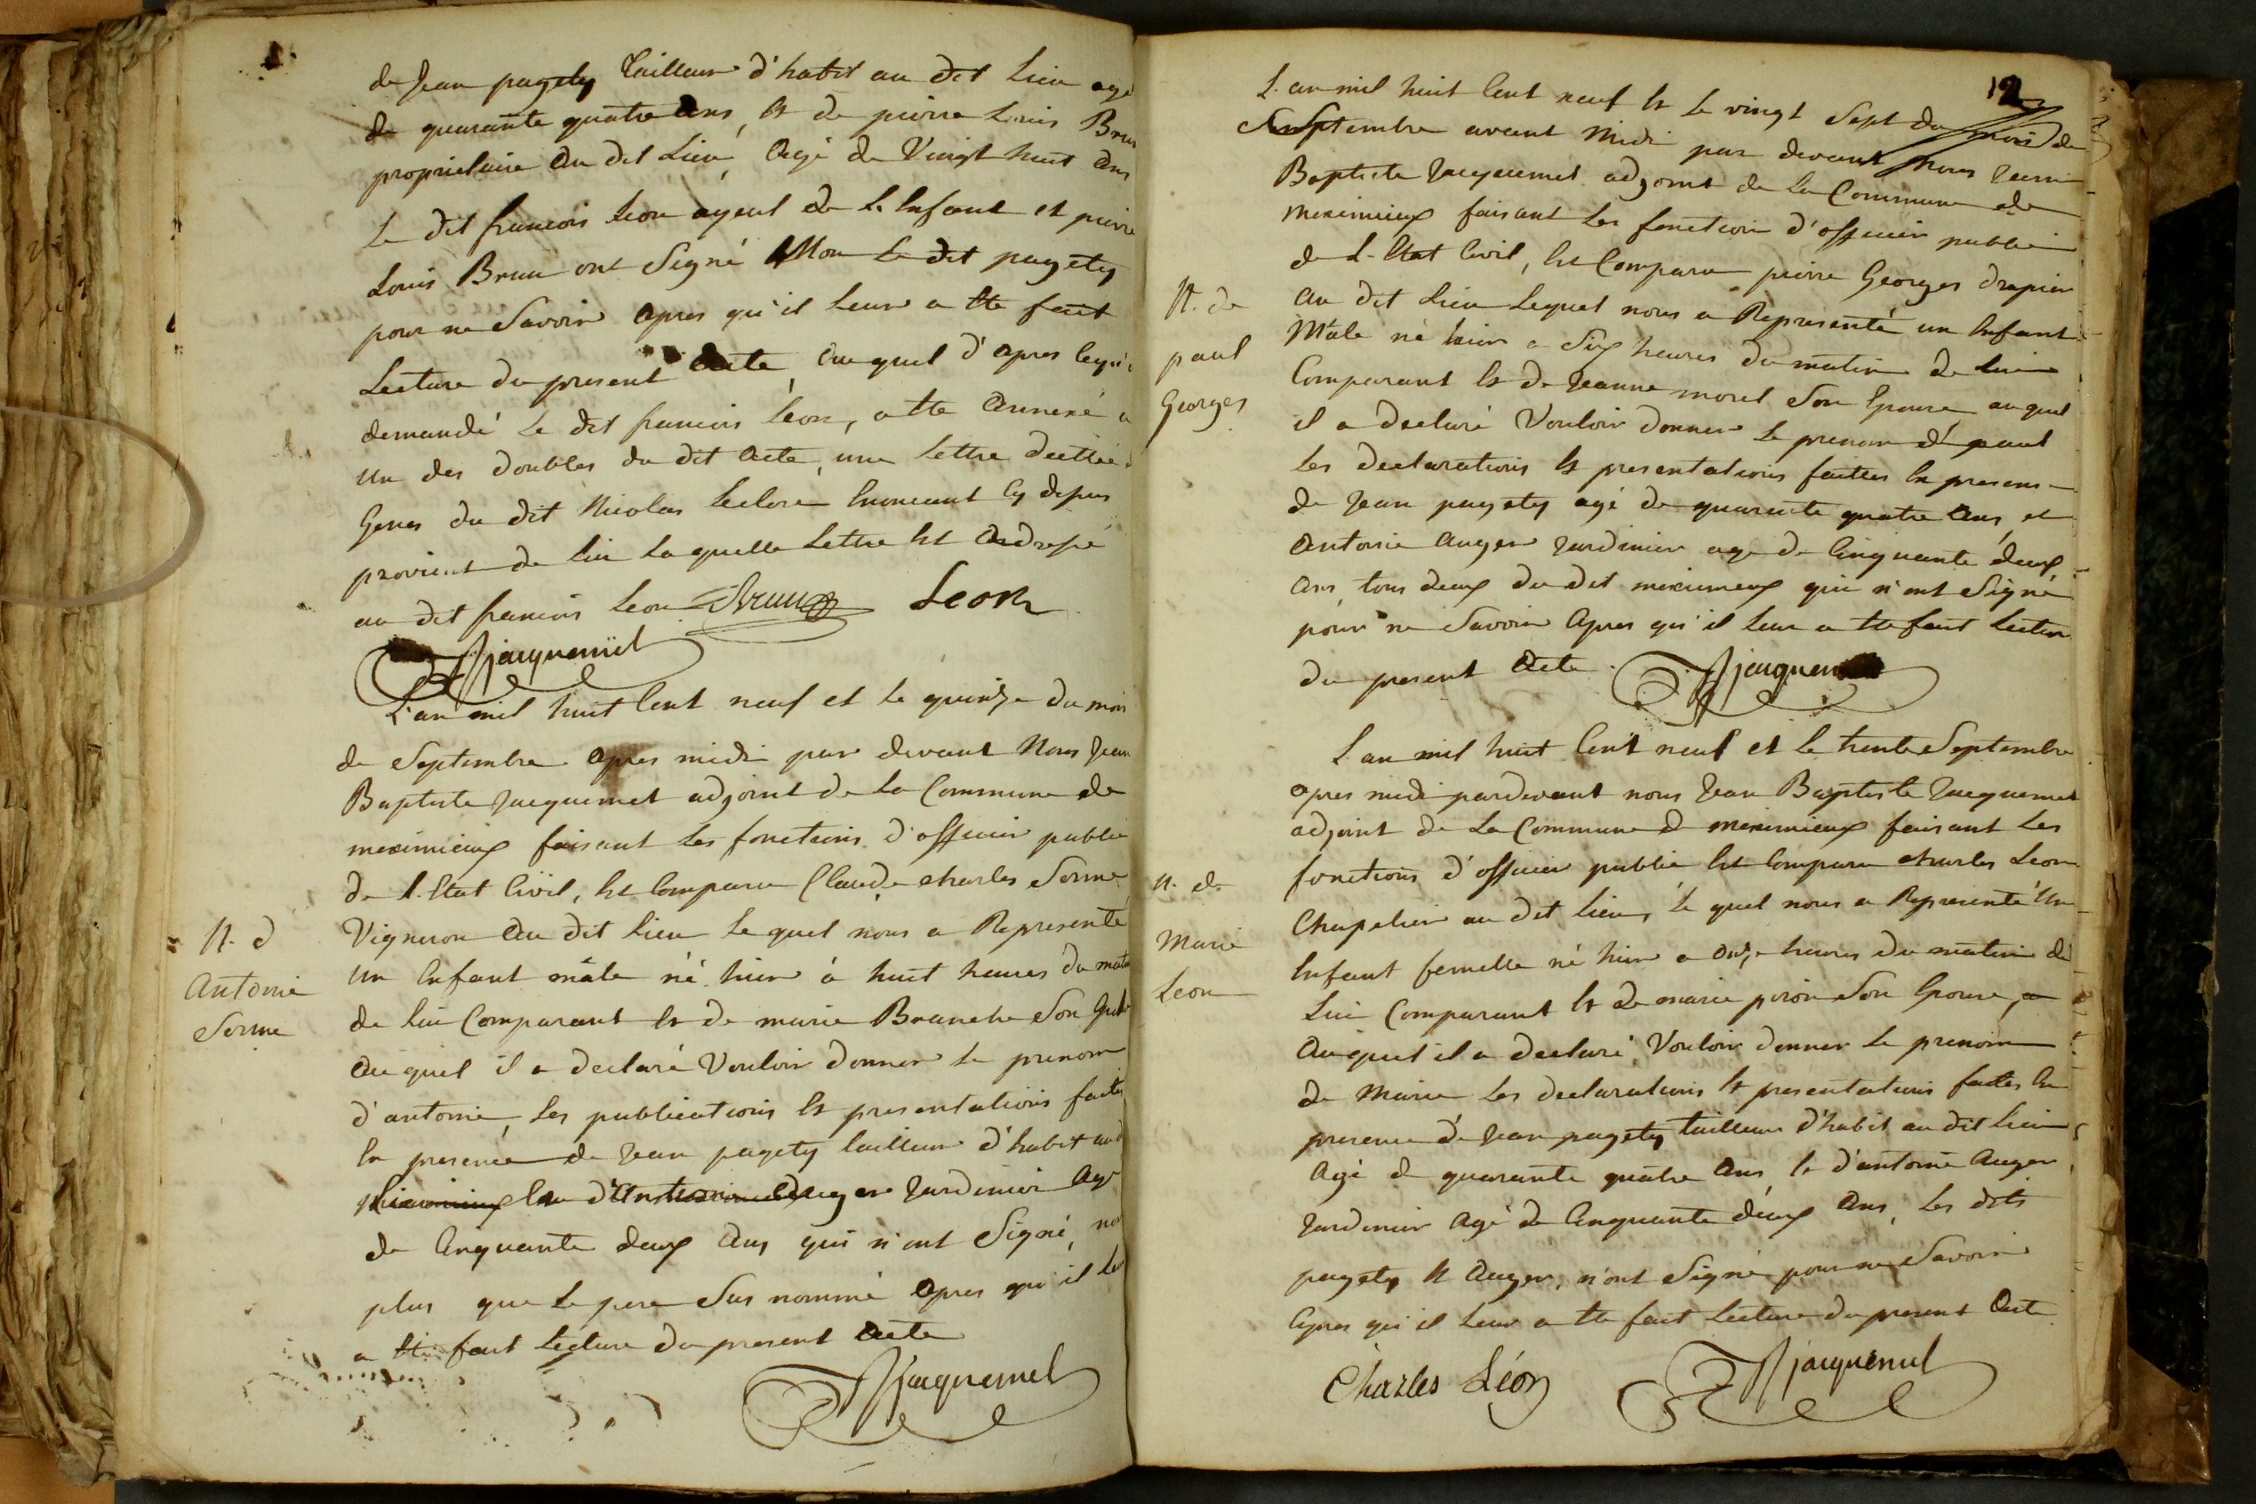 de Jean pagety tailleur d'habit au dit Lieu agé
de quarante quatre ans, et de pierre Louis Brun
proprietaire au dit Lieu, agé de vingt huit ans
Le dit francois Leon ayeul de L'enfant et pierre
Louis Brun ont Signé Non Le dit pagety
pour ne Savoir apres qu'il leur a ete fait
Lecture du present acte, auquel d'apres
demandé Le dit francois Leon, a ete annexé a
un des doubles du dit acte, une Lettre
Genes du dit Nicolas enoncant
provient de lui Laquelle Lettre est adressé
au dit francois Leon Brun Leon
Jacquemet
L'an mil huit Cent neuf et le quinze du mois
de Septembre apres midi par devant Nous Jean
Baptiste Jacquemet adjoint de La Commune de
meximieux faisant Les fonctions d'officier public
de L'Etat Civil, est Comparu Claude charles Sorme
Vigneron au dit Lieu Le quel nous a Representé
N. d
un Enfant mâle né hier à huit heures du matin
Antoine
de lui Comparant et de marie Branche Son
Sorme
auquel il a declaré Vouloir donner Le prenom
d'antoine, Les publications et presentations faites
en presence de Jean pagety tailleur d'habit au d
meximieux et d'Antoine auger Jardinier agé
de Cinquante deux ans qui n'ont Signé, non
plus que Le pere Sus nommé apres qu'il leur
a ete fait Lecture du present acte
Jacquemet
12
L'an mil huit Cent neuf et Le vingt Sept du mois de
Septembre avant Midi par devant Nous Jean
Baptiste Jacquemet adjoint de La Commune de
meximieux faisant Les fonction d'officier public
de L'Etat Civil, est Comparu pierre Georges drapier
N. de
au dit Lieu Lequel nous a Representé un Enfant
paul
Mâle né hier a Six heures du matin de lui
Georges
Comparant et de Jeanne morel Son Epouse, auquel
il a declaré Vouloir donner Le prenom de paul
Les declarations et presentations faites en presence
de Jean pagety agé de quarante quatre ans, et
antoine auger Jardinier age de Cinquante deux
ans, tous deux du dit meximieux qui n'ont Signé
pour ne Savoir apres qu'il leur a ete fait Lecture
du present acte. Jacquemet
L'an mil huit Cent neuf et le trente Septembre
apres midi pardevant nous Jean Baptiste Jacquemet
adjoint de La Commune de meximieux faisant Les
fonctions d'officier public est Comparu charles Leon
N. de
Chapelier au dit Lieu, Le quel nous a Representé Un
Marie
Enfant femelle né hier a onze heures du matin de
Leon
Lui Comparant et de marie Son Epouse, a
auquel il a declaré Vouloir donner Le prenom
de Marie Les declarations et presentations faites en
presence de Jean pagety tailleur d'habit au dit Lieu
agé de quarante quatre ans, et d'antoine Auger
Jardinier agé de Cinquante deux ans, Les dits
pagety et Auger, n'ont Signé pour ne Savoir
apres qu'il leur a ete fait Lecture du present acte
Charles Léon Jacquemet